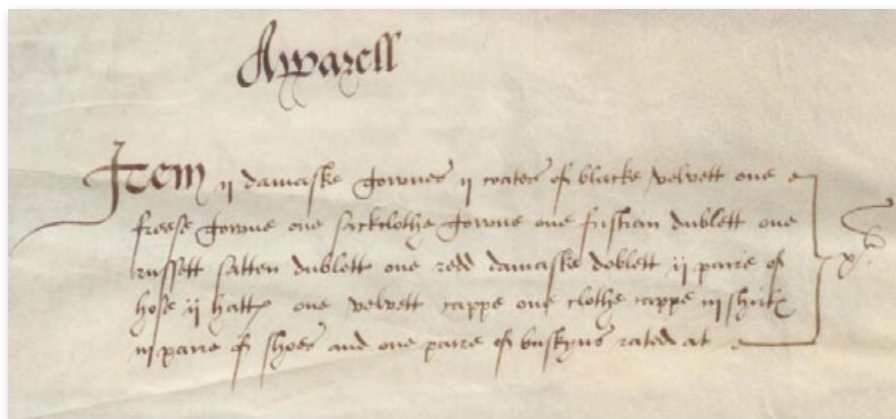 Apparell
Item ij damaske gownes ij coates of blacke velvett one
freese gowne one sackclothe gowne one fustian dublett one
russett satten dublett one redd damaske doblett ij paire of
hose ij hattes one velvett cappe one clothe cappe iij shirtes
iij paire of shoes and one paire of buskyns rated at